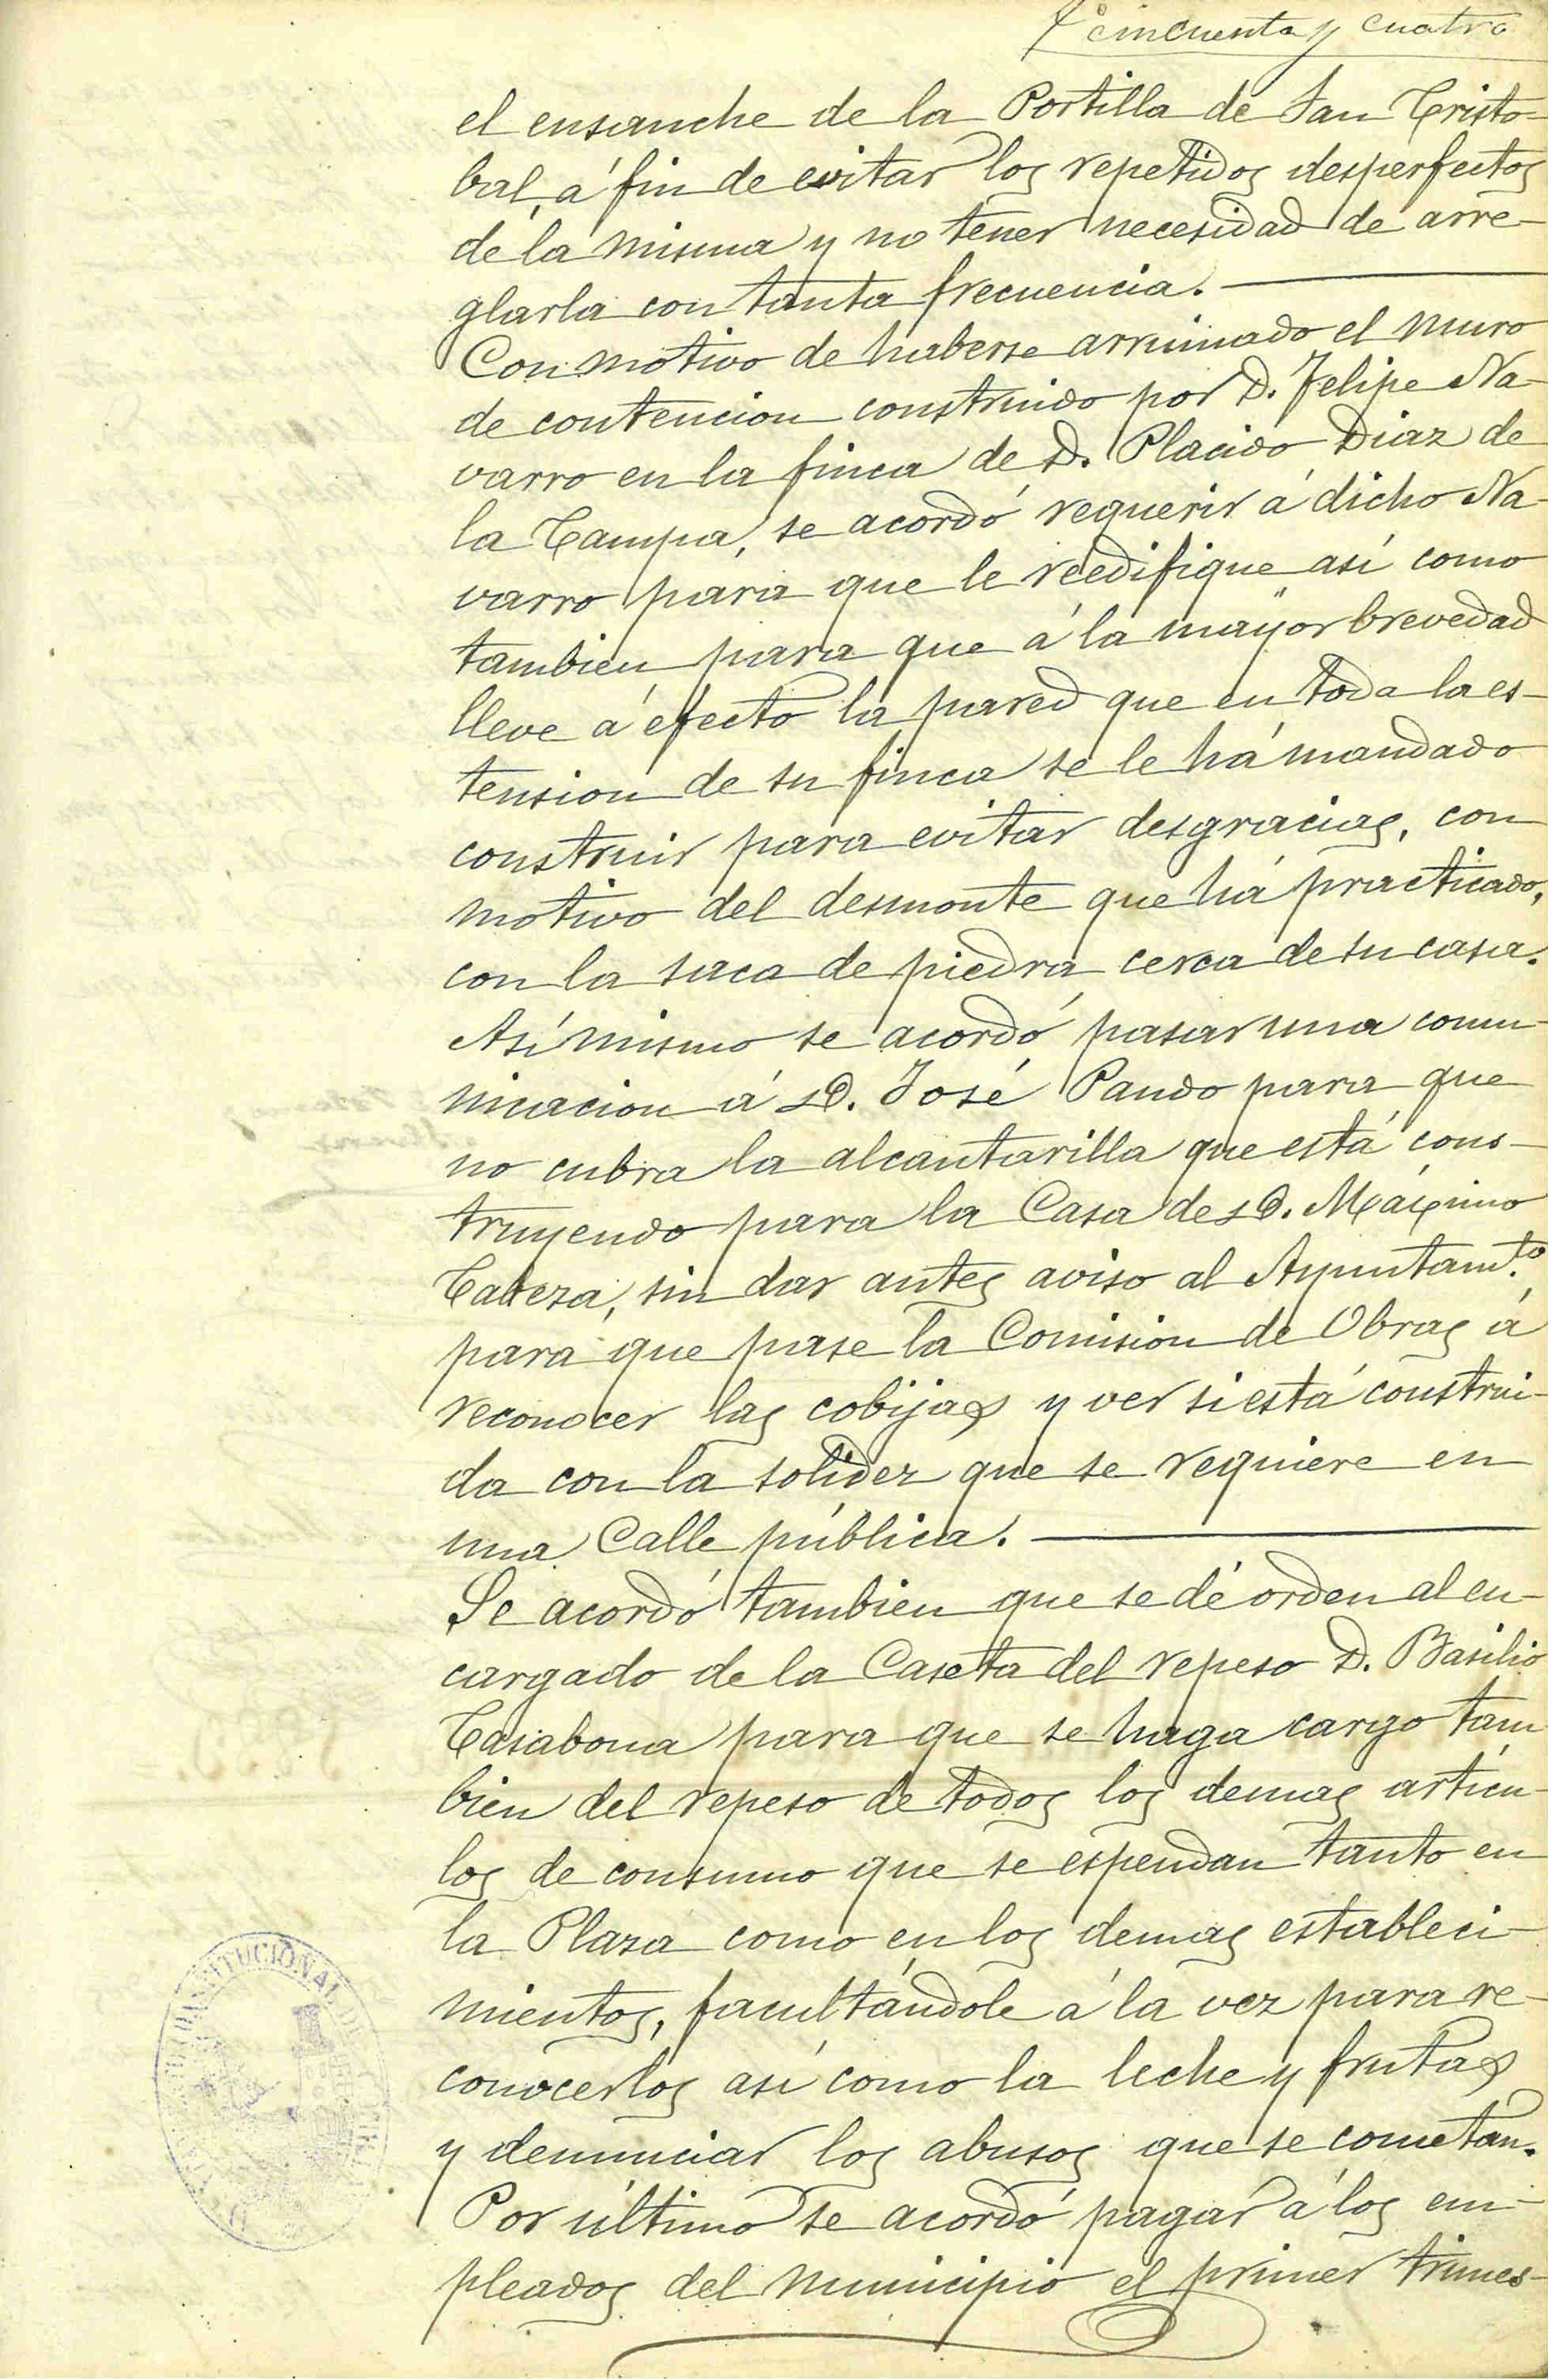 cincuenta y cuatro
el ensanche de la Portilla de San Cristo-
bal, á fin de evitar los repetidos desperfectos
de la misma y no tener necesidad de arre-
glarla con tanta frecuencia.
Con motivo de haberse arruinado el muro
de contencion construido por D. Felipe Na-
varro en la finca de D. Placido Diaz de
la Campa, se acordó requerir á dicho Na-
varro para que le reedifique así como
tambien para que á la mayor brevedad
lleve á efecto la pared que en toda la es-
tension de su finca se le há mandado
construir para evitar desgracias, con
motivo del desmonte que há practicado,
con la saca de piedra cerca de su casa.
Así mismo se acordó pasar una comu-
nicacion á D. José Pando para que
no cubra la alcantarilla que está cons-
truyendo para la Casa de D. Máximo
Cabeza, sin dar antes aviso al Ayuntamto.
para que pase la Comision de Obras á
reconocer las cobijas y ver si está construi-
da con la solidez que se requiere en
una Calle pública.
Se acordó tambien que se dé orden al en-
cargado de la Caseta del repeso D. Basilio
Casabona para que se haga cargo tam
bien del repeso de todos los demas articu-
los de consumo que se espendan tanto en
la Plaza como en los demas estableci-
mientos, facultándole á la vez para re-
conocerlos así como la leche y frutas
y denunciar los abusos que se cometan.
Por último se acordó pagar á los em-
pleados del municipio el primer trimes-